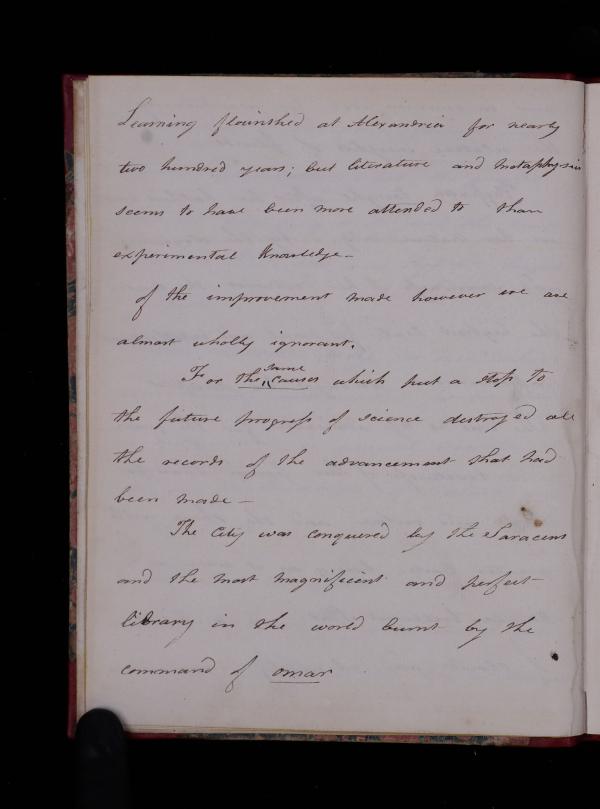 Learning flourished at Alexandria for nearly
two hundred years; but literature and metaphysics
seems to have been more attended to than
experimental Knowledge –
of the improvement made however we are
almost wholly ignorant.
For the same causes which put a stop to
the future progress of science destroyed all
the records of the advancement that had
been made –
The City was conquered by the Saracens
and the most magnificent and perfect
library in the world burnt by the
command of omar